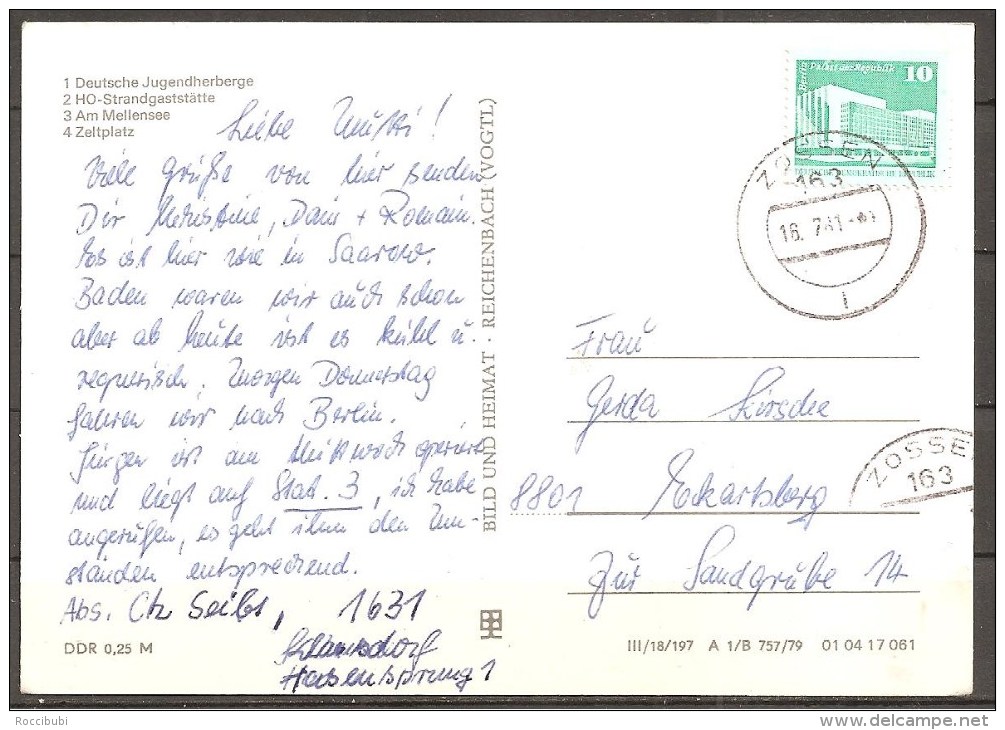 1 Deutsche Jugendherberge
2 HO-Strandgaststätte
3 Am Mellensee
4 Zeltplatz
Liebe Mutti!
Viele Grüße von hier senden
Dir Christine, + Romain.
Es ist hier wie in Saarow.
Baden waren wir auch schon
aber ab heute ist es kühl u.
regnerisch. Morgen Donnerstag
fahren wir nach Berlin.
Jürgen ist am Mittwoch operiert
und liegt auf Stat. 3, ich habe
angerufen, es geht ihm den Um-
ständen entsprechend.
Abs. Ch. Seibt, 1631
Hasensprung 1
DDR 0,25 M
BILD UND HEIMAT · REICHENBACH (VOGTL)
Berlin Palast der Republik 10
DEUTSCHE DEMOKRATISCHE REPUBLIK
ZOSSEN
163
16. 7.81
Frau
Gerda Kirsche
8801 Eckartsberg
Zur Sandgrube 14
ZOSSEN
163
III/18/197 A 1/B 757/79 01 04 17 061
Roccibubi
www.delcampe.net